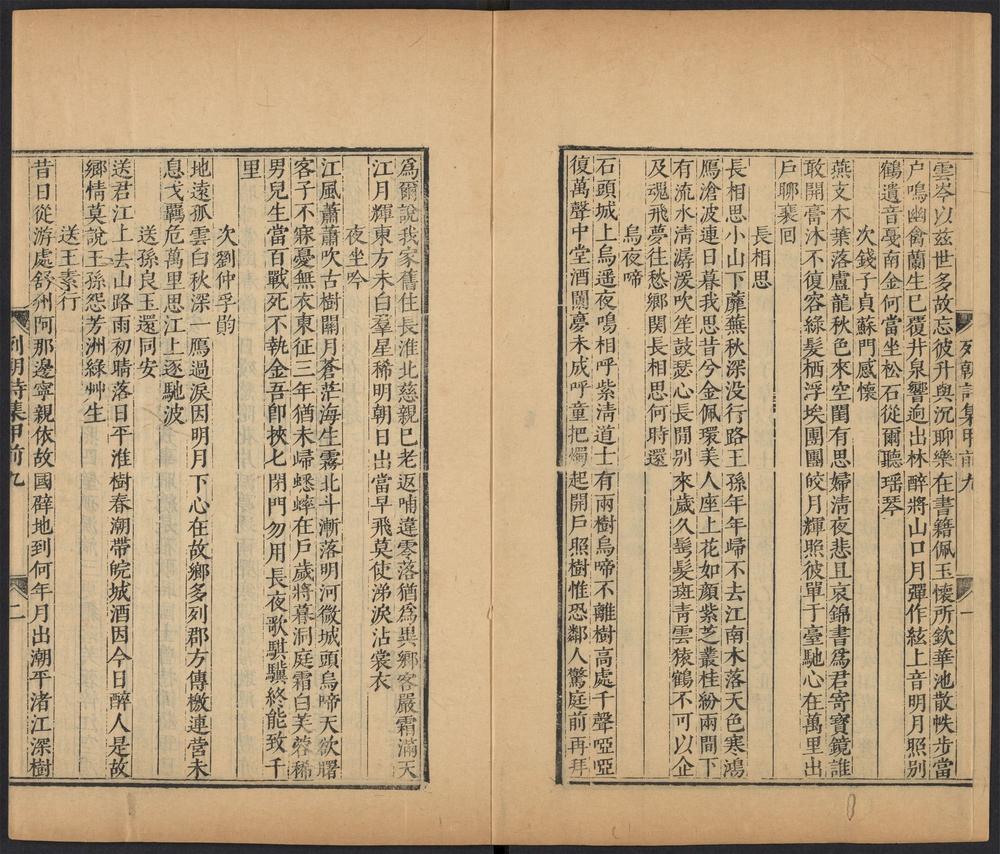 列朝詩集甲前九
一
雲岑以兹世多故忘彼升與沉聊樂在書籍佩玉懷所欽華池散帙步當
户鳴幽禽蘭生已覆井泉響逈出林醉將山口月彈作絃上音明月照別
鶴遺音戞南金何當坐松石從爾聽瑶琴
次錢子貞蘇門感懷
燕支木葉落盧龍秋色來空閨有思婦清夜悲且哀錦書爲君寄寶鏡誰
敢開膏沐不復容綠髪栖浮埃團團皎月輝照彼單于臺馳心在萬里出
戶聊裵回
長相思
長相思小山下蘼蕪秋深没行路王孫年年歸不去江南木落天色寒鴻
鴈滄波連日暮我思昔兮金佩環美人座上花如顔紫芝叢桂紛兩間下
有流水清潺湲吹笙鼓瑟心長閒別來歲久髩髪斑青雲猿鶴不可以企
及魂飛夢往愁鄉関長相思何時還
烏夜啼
石頭城上烏遥夜鳴相呼紫清道士有兩樹烏啼不離樹高處千聲啞啞
復萬聲中堂酒闌夢未成呼童把燭起開戶照樹惟恐鄰人驚庭前再拜
爲爾說我家舊住長淮北慈親已老返哺違零落猶爲異鄉客嚴霜滿天
江月輝東方未白羣星稀明朝日出當早飛莫使涕淚沾裳衣
夜坐吟
江風蕭蕭吹古樹關月蒼茫海生霧北斗漸落明河微城頭烏啼天欲曙
客子不寐憂無衣東征三年猶未歸蟋蟀在戶歲將暮洞庭霜白芙蓉稀
男兒生當百戰死不執金吾卽挾匕閉門勿用長夜歌騏驥終能致千
里
次劉仲孚韵
地遠孤雲白秋深一鴈過淚因明月下心在故鄉多列郡方傳檄連营未
息戈羈危萬里思江上逐馳波
送孫良玉還同安
送君江上去山路雨初晴落日平淮樹春潮帶皖城酒因今日醉人是故
鄉情莫說王孫怨芳洲綠艸生
送王素行
昔日從游處舒州阿那邊寧親依故國辟地到何年月出潮平渚江深樹
列朝詩集甲前九
二